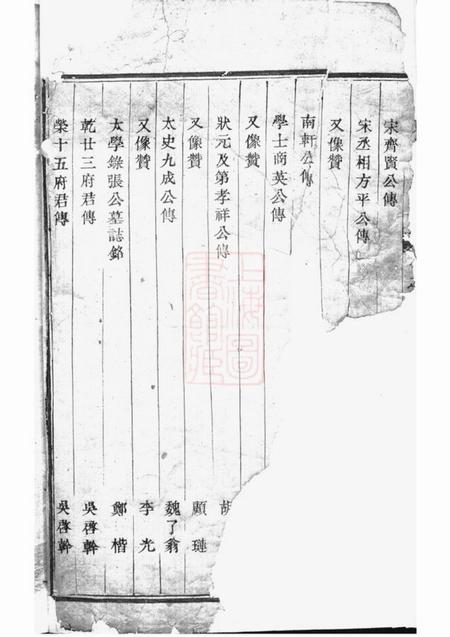 宋齊賢公傳
宋丞相方平公傳
又像贊
南軒公傳
學士商英公傳
又像贊
狀元及第孝祥公傳 胡
又像贊 顧璉
太史九成公傳 魏了翁
又像贊 李光
太學錄張公墓誌銘 鄭楷
乾廿三府君傳 吳啓幹
榮十五府君傳 吳啓幹
上海圖書館藏